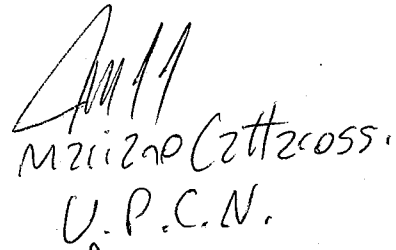 Mariano Cattacoss.
U.P.C.N.